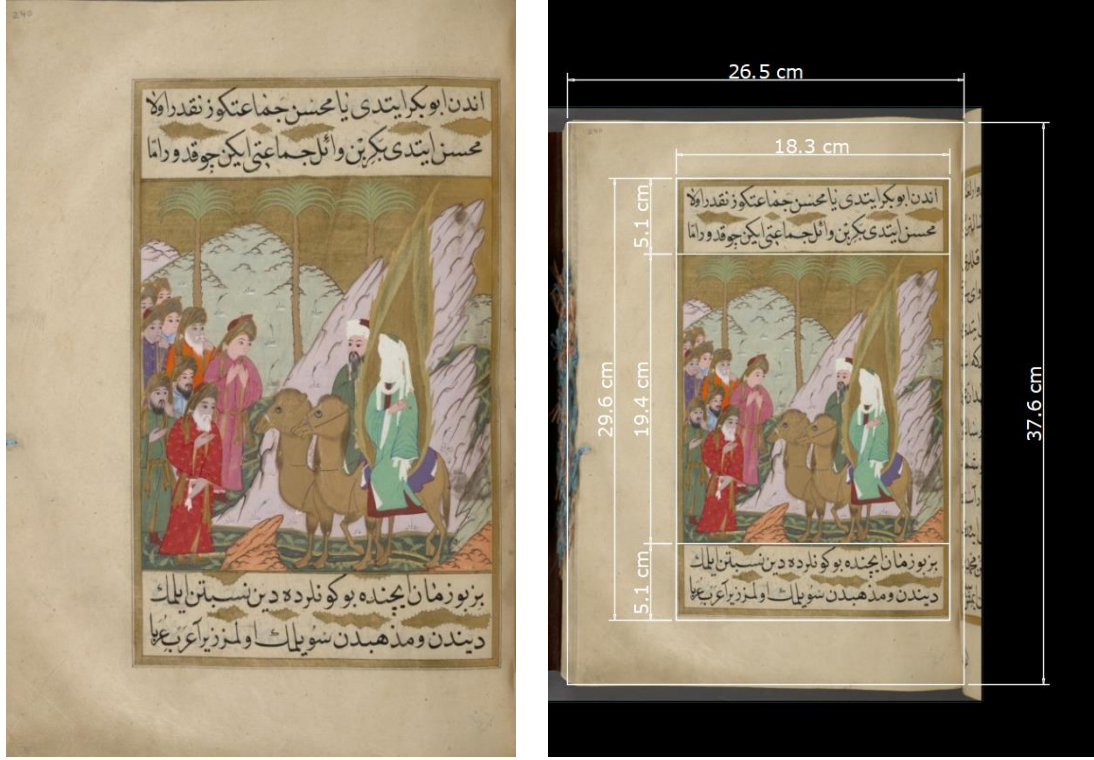 240
اندن ابو بكر ايتدى يا محسن جماعتكوز نقدر اولا
محسن ايتدى بكر بن وائل جماعتى ايكن چوقدور امّا
بز بو زمان ايچنده بو كونلرده دين نسبتن ايلمك
ديندن ومذهبدن سويلمك اولمز زيرا عرب عربا
26.5 cm
18.3 cm
240
اندن ابو بكر ايتدى يا محسن جماعتكوز نقدر اولا
محسن ايتدى بكر بن وائل جماعتى ايكن چوقدور امّا
5.1 cm
29.6 cm
19.4 cm
37.6 cm
5.1 cm
بز بو زمان ايچنده بو كونلرده دين نسبتن ايلمك
ديندن ومذهبدن سويلمك اولمز زيرا عرب عربا